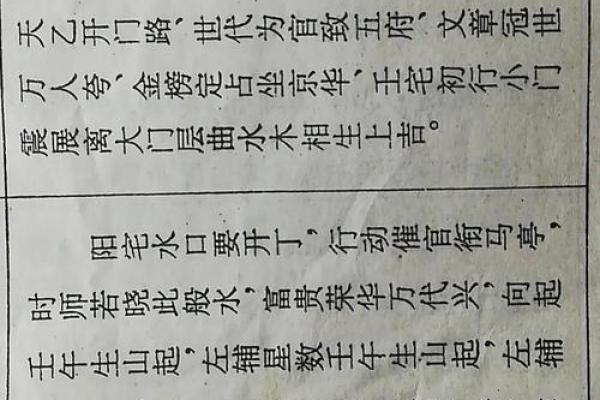 天乙开门路、世代为官致五府、文章冠世
万人夸、金榜定占坐京华、壬宅初行小门
震展离大门层曲水木相生上吉。
阳宅水口要开丁，行动催官衔马亭，
时师若晓此般水，富贵荣华万代兴，向起
壬午生山起，左辅星数壬午生山起，左辅